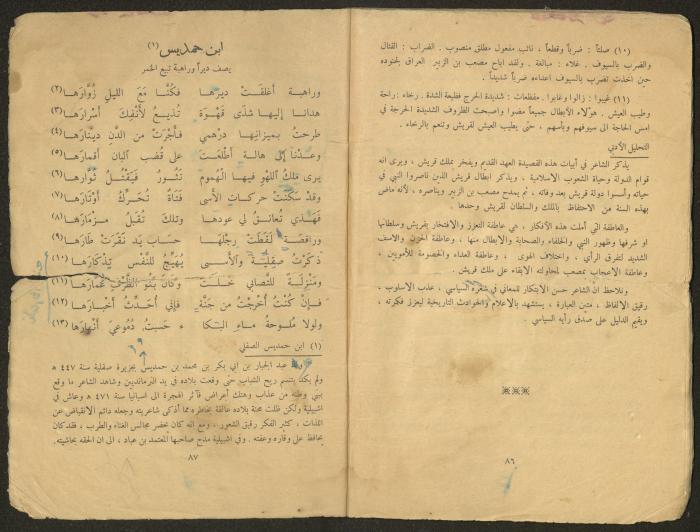 (١٠) صلتاً : ضرباً وقطعاً ، نائب مفعول مطلق منصوب . الضراب : القتال
والضرب بالسيوف . غلاء : مبالغة . ولقد اباح مصعب بن الزبير العراق لجنوده
حين اخذت تضرب بالسيوف اعداءه ضرباً شديداً .
(١١) غيبوا : زالوا وغابوا . مفظعات : شديدة الحرج فظيعة الشدة . رخاء : راحة
وطيب العيش . هؤلاء الأبطال جميعاً مضوا واصبحت الظروف الشديدة الحرجة في
امس الحاجة الى سيوفهم وبأسهم ، حتى يطيب العيش لقريش وتنعم بالرخاء .
التحليل الأدبي
يذكر الشاعر في أبيات هذه القصيدة العهد القديم ويفخر بملك قريش ، ويرى انه
قوام الدولة وحياة الشعوب الاسلامية ، ويذكر ابطال قريش الذين ناصروا النبي في
حياته وأسسوا دولة قريش بعد وفاته ، ثم يمدح مصعب بن الزبير ويناصره ، لأنه ماض
بهذه السنة من الاحتفاظ بالملك والسلطان لقريش وحدها .
والعاطفة التي أملت هذه الأفكار ، هي عاطفة التعزز والافتخار بقريش وسلطانها
او شرفها وظهور النبي والخلفاء والصحابة والابطال منها ، وعاطفة الحزن والاسف
الشديد لتفرق الرأي ، واختلاف الهوى ، وعاطفة العداء والخصومة للأمويين ،
وعاطفة الاعجاب بمصعب لمحاولته الابقاء على ملك قريش .
ونلاحظ ان الشاعر حسن الابتكار للمعاني في شعره السياسي ، عذب الاسلوب ،
رقيق الالفاظ ، متين العبارة ، يستشهد بالاعلام والحوادث التاريخية ليعزز فكرته ،
ويقيم الدليل على صدق رأيه السياسي .
٨٦
ابن حمديس (١)
يصف ديراً وراهبة تبيع الخمر
وراهبة أغلقتْ ديرها فكنَّا مَعَ الليلِ زُوَّارَها (٢)
هدانا إليها شذَى قهْوَة تُذيعُ لأنْفِكَ أسْرارَها (٣)
طرحتُ بميزانِها درْهمي فأجْرَت من الدنِّ دينَارَها (٤)
وعدْنا إلى هالة أطْلعَت على قُضبِ البانِ أقمارَها (٥)
يرى ملكُ اللهْوِ فيها الهُموم تَثُور فيَقْتُل ثُوَّارها (٦)
وقدْ سكنَتْ حركاتِ الأسى فَتَاةٌ تُحَرِّكُ أوْتارَها (٧)
فهَذي تُعانقُ لي عودَها وتلكَ تُقبِّل مزْمَارَها (٨)
وراقصة لقطَتْ رجْلُها حسابَ يد نَقَرَت طَارَها (٩)
ذكرْتُ صقِليَّة والأسى يُهيِّجُ للنَّفْس تِذكارَها (١٠)
ومَنْزِلَة للتَّصابي خَلت وكانَ بنُو الظَّرْفِ عُمَّارَها (١١)
فإنْ كُنْتُ أُخرِجْتُ من جَنَّة فإني أحَدِّثُ أخْبارَها (١٢)
ولولا مُلُوحةُ ماءِ البُكا ء حَسِبتُ دُمُوعيَ أنْهارَها (١٣)
(١) ابن حمديس الصقلي
ولد عبد الجبار بن ابي بكر بن محمد بن حمديس بجزيرة صقلية سنة ٤٤٧ ه
ولم يكد يتنسم ريح الشباب حتى وقعت بلاده في يد النرمانديين وشاهد الشاعر ما وقع
لبني وطنه من عذاب وهتك أعراض فآثر الهجرة الى اسبانيا سنة ٤٧١ ه وعاش في
اشبيلية ولكن ظلت محنة بلاده عالقة بخاطره مما أذكى شاعريته وجعله دائم الانقباض عن
اللذات ، كثير الفكر رقيق الشعور ، ومع انه كان يحضر مجالس الغناء والطرب ، فقد كان
يحافظ على وقاره وعفته . وفي اشبيلية مدح صاحبها المعتمد بن عباد ، الى ان الحقه بحاشيته.
٨٧